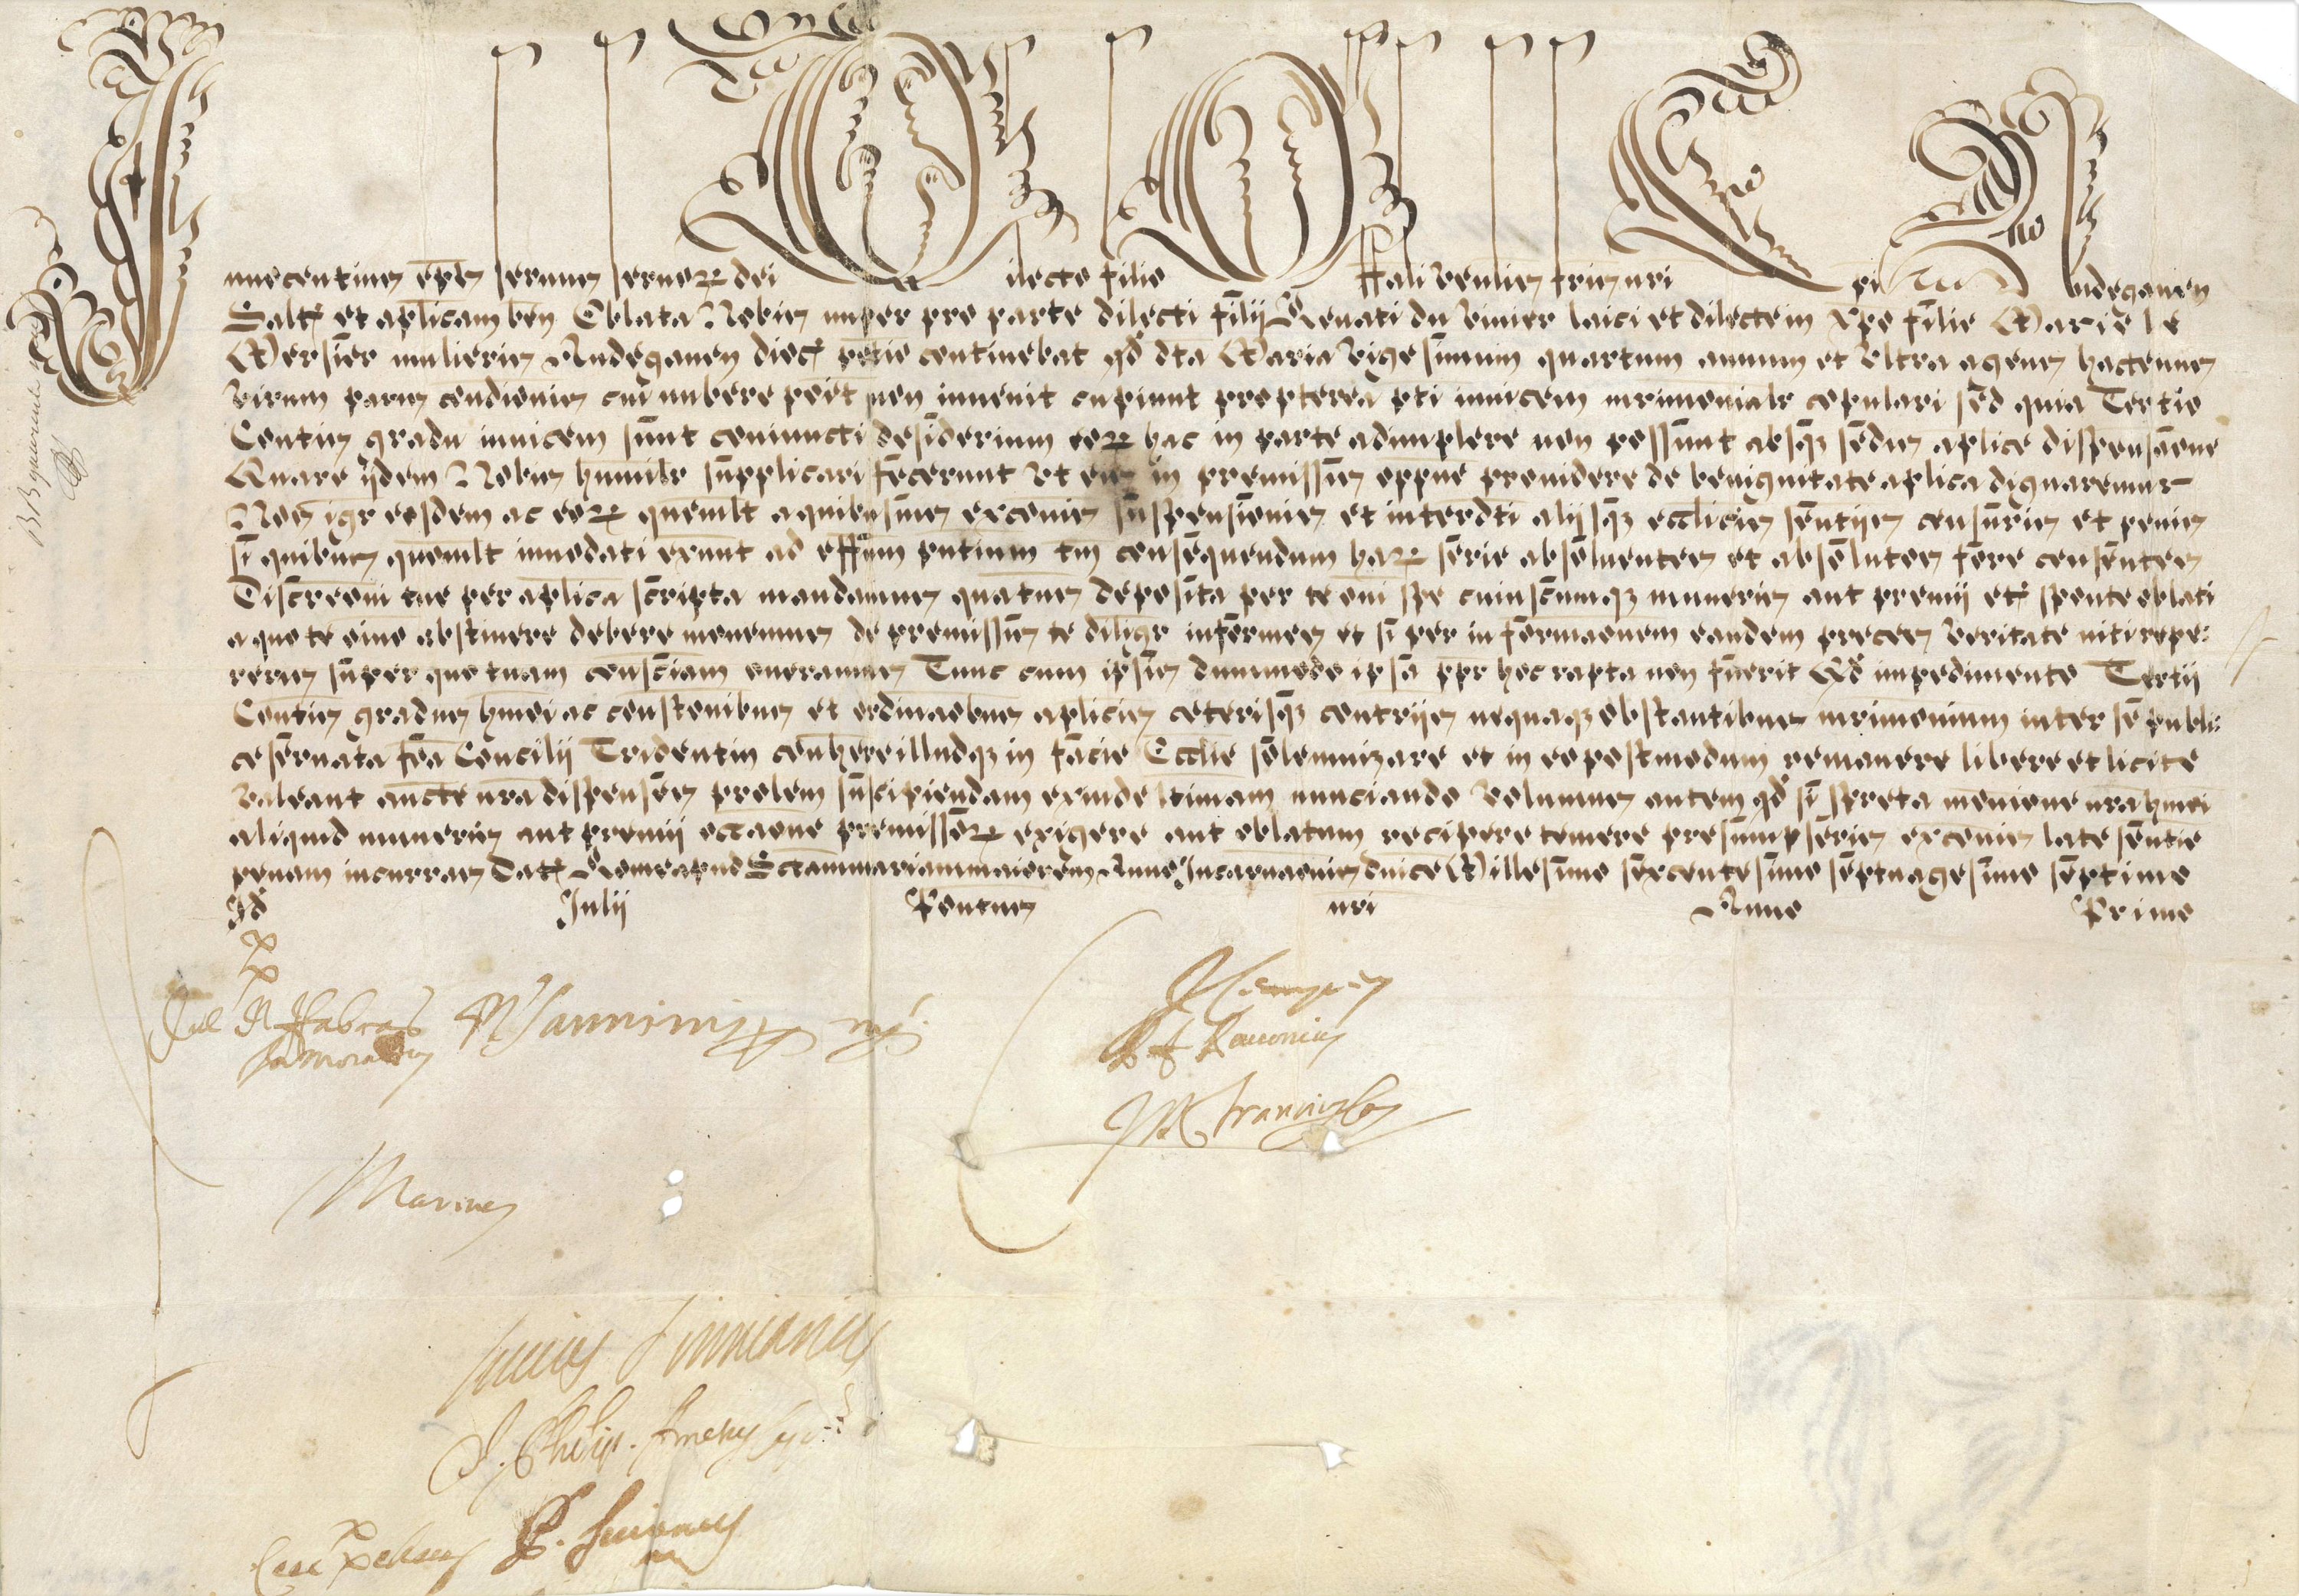 Innocentius eps seruus seruor dei Dilecto filio Offali Venlis fris nri Epi Andegauen
Saltem et aplicam ben Oblata Nobis nuper pro parte dilecti filij Renati du Viuier laici et dilecte in Xpo filie Marie le
Mersier mulieris Andegauen dioc petio continebat qd dta Maria Vigesimum quartum annum et Vltra agens hactenus
Virum paris condionis cui nubere poet non inuenit cupiunt propterea pti inuicem mrimonialr copulari sed quia Tertio
Centis gradu inuicem sunt coniuncti desiderium eor hac in parte adimplere non possunt absqz sedis aplice dispensaone
Quare ijdem Nobis humilr supplicari fecerunt Vt eis in premissis oppne prouidere de benignitate aplica dignaremur
Nos igr eosdem ac eor quemlt a quibusuis excoenis suspensionis et interdti alijsqz ecclicis sentijs censuris et penis
si quibus quomlt innodati exunt ad effum pntium tm consequendum har serie absoluentes et absolutos fore censentes
Discreoni tue per aplica scripta mandamus quatnus deposita per te oni spe cuiuscumqz muneris aut premij et sponte oblati
a quo te oino abstinere debere monemus de premissis te diligr informes et si per informaonem eandem preces Veritate niti repe:
reris super quo tuam consciam oneramus Tunc cum ipsis dummodo ipsa ppr hoc rapta non fuerit Qd impedimento Tertij
Centis gradus hmoi ac constonibus et ordinaobus aplicis ceterisqz contrijs nequaqz obstantibus mrimonium inter se publi:
ce seruata foa Concilij Tridentin conhere illudqz in facie Ecclie solemnizare et in eo postmodum remanere libere et licite
Valeant aucte nra dispenses prolem suscipiendam exinde ltimam nunciando Volumus autem qd si spreta monione nra hmoi
aliquid muneris aut premij occaone premissor exigere aut oblatum recipere temere presumpseris excoenis late sentie
penam incurras Dat Rome apud Sctam mariam maiorem Anno Incarnaonis dnice Millesimo sexcentesimo septuagesimo septimo
Id Julij Pontus nri Anno Primo